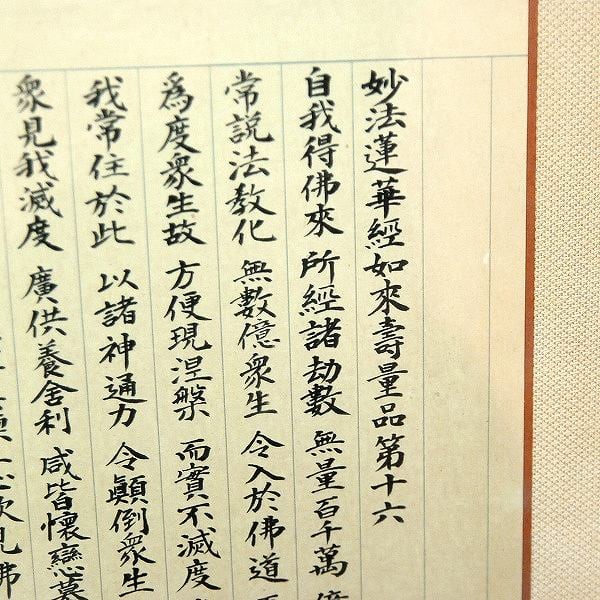 妙法蓮華經如來壽量品第十六
自我得佛來 所經諸劫數 無量百千萬
常説法教化 無數億衆生 令入於佛道
爲度衆生故 方便現涅槃 而實不滅度
我常住於此 以諸神通力 令顛倒衆生
衆見我滅度 廣供養舍利 咸皆懷戀慕
心欲見佛